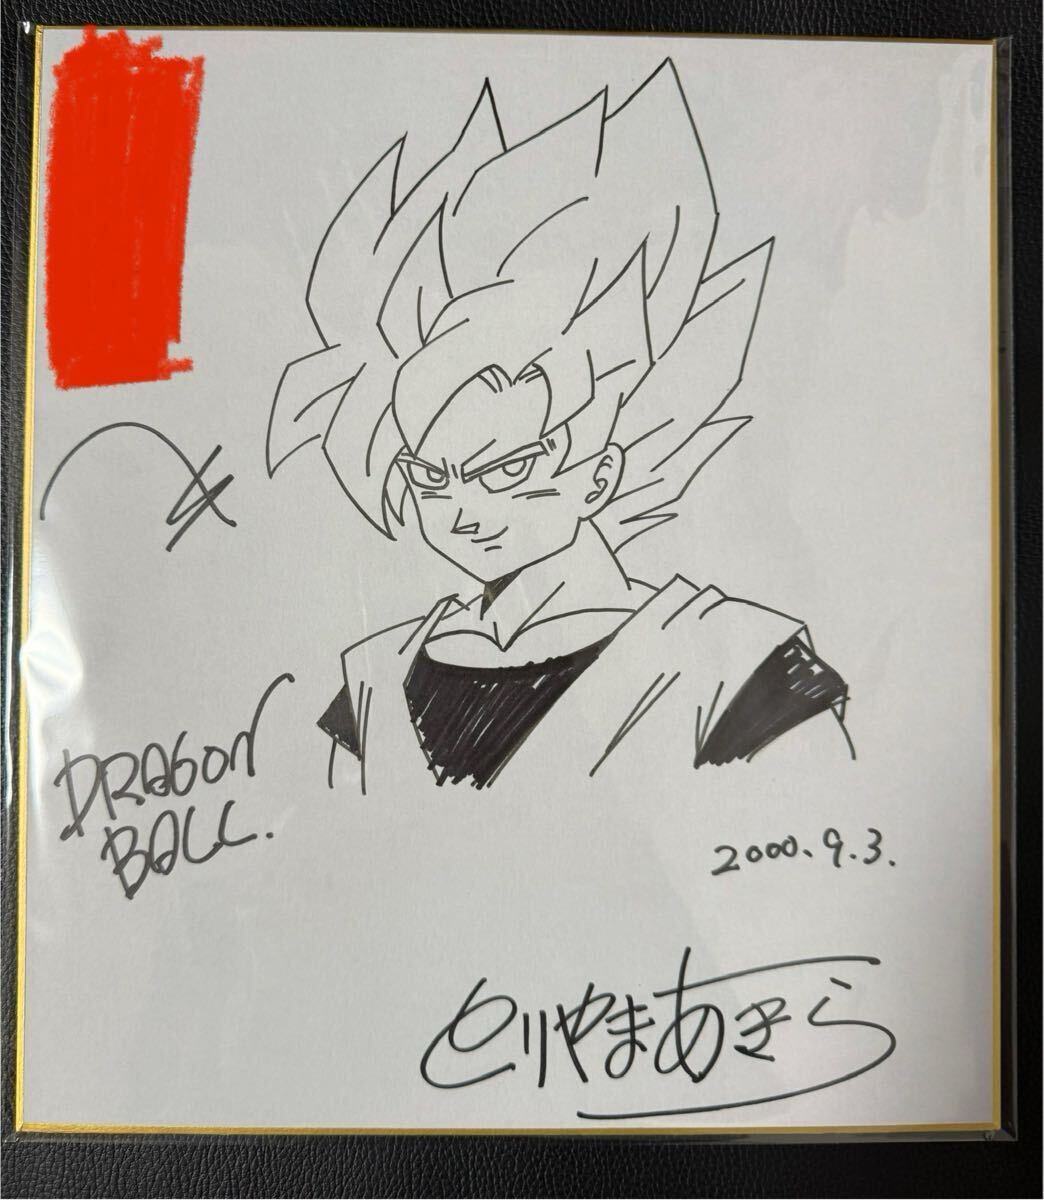 へ
DRAGON
BALL.
2000.9.3.
とりやまあきら